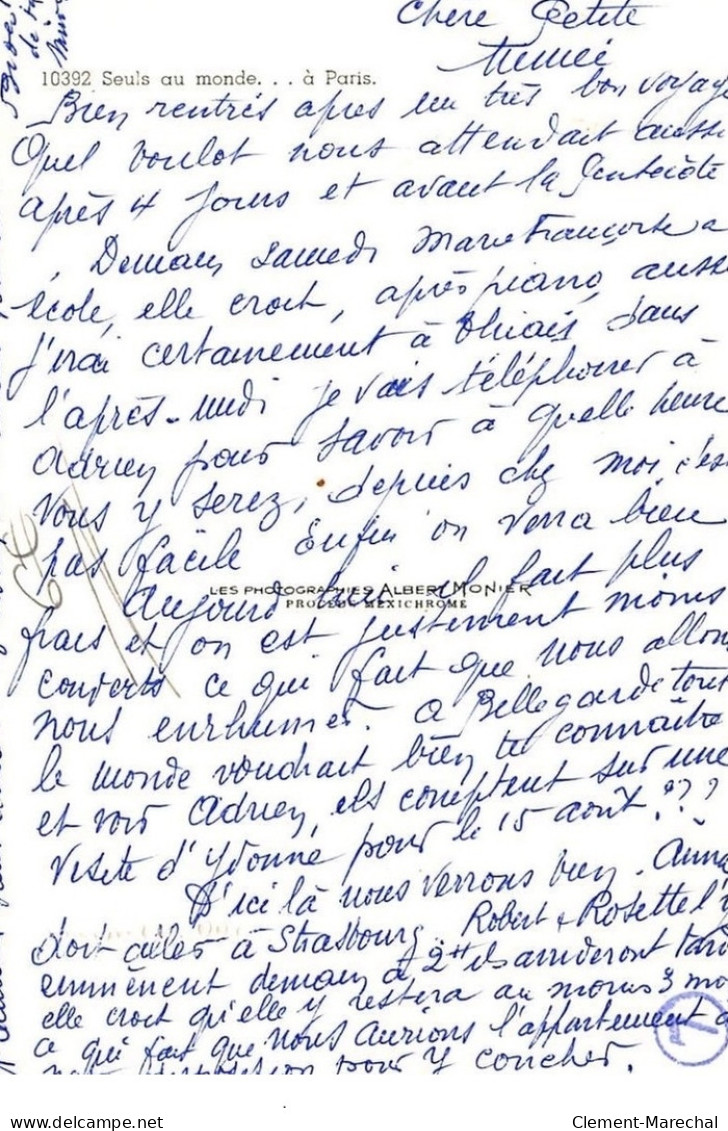 Chère Petite
Mémée
10392 Seuls au monde. . . à Paris.
Bien rentrés après un très bon voyage
Quel boulot nous attendait aussi
après 4 jours et avant la Pentecôte
Demain samedi Marie Françoise a
école, elle croit, après piano, aussi
j'irai certainement à Thiais dans
l'après-midi je vais téléphoner à
Adrien pour savoir à quelle heure
vous y serez, depuis chez moi c'est
pas facile Enfin on verra bien
Aujourd'hui il fait plus
LES PHOTOGRAPHIES ALBERT MONIER
PROCÉDÉ MEXICHROME
frais et on est justement moins
couverts ce qui fait que nous allons
nous enrhumer. A Bellegarde tout
le monde voudrait bien te connaître
et voir Adrien, ils comptent sur une
visite d'Yvonne pour le 15 août. ??
D'ici là nous verrons bien. Anna
doit aller à Strasbourg. Robert & Rosette l'y
emmènent demain à 2H ils arriveront tard
elle croit qu'elle y restera au moins 3 mois
ce qui fait que nous aurions l'appartement à
pour y coucher.
Clement-Marechal